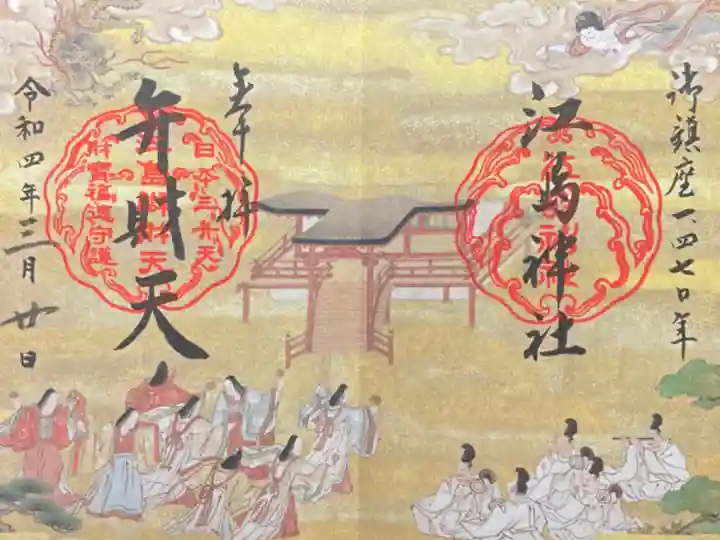 御鎮座一四七〇年
江島神社
奉拝
弁財天
日本三弁天
江島弁財天
財寶福徳守護
令和四年三月廿日